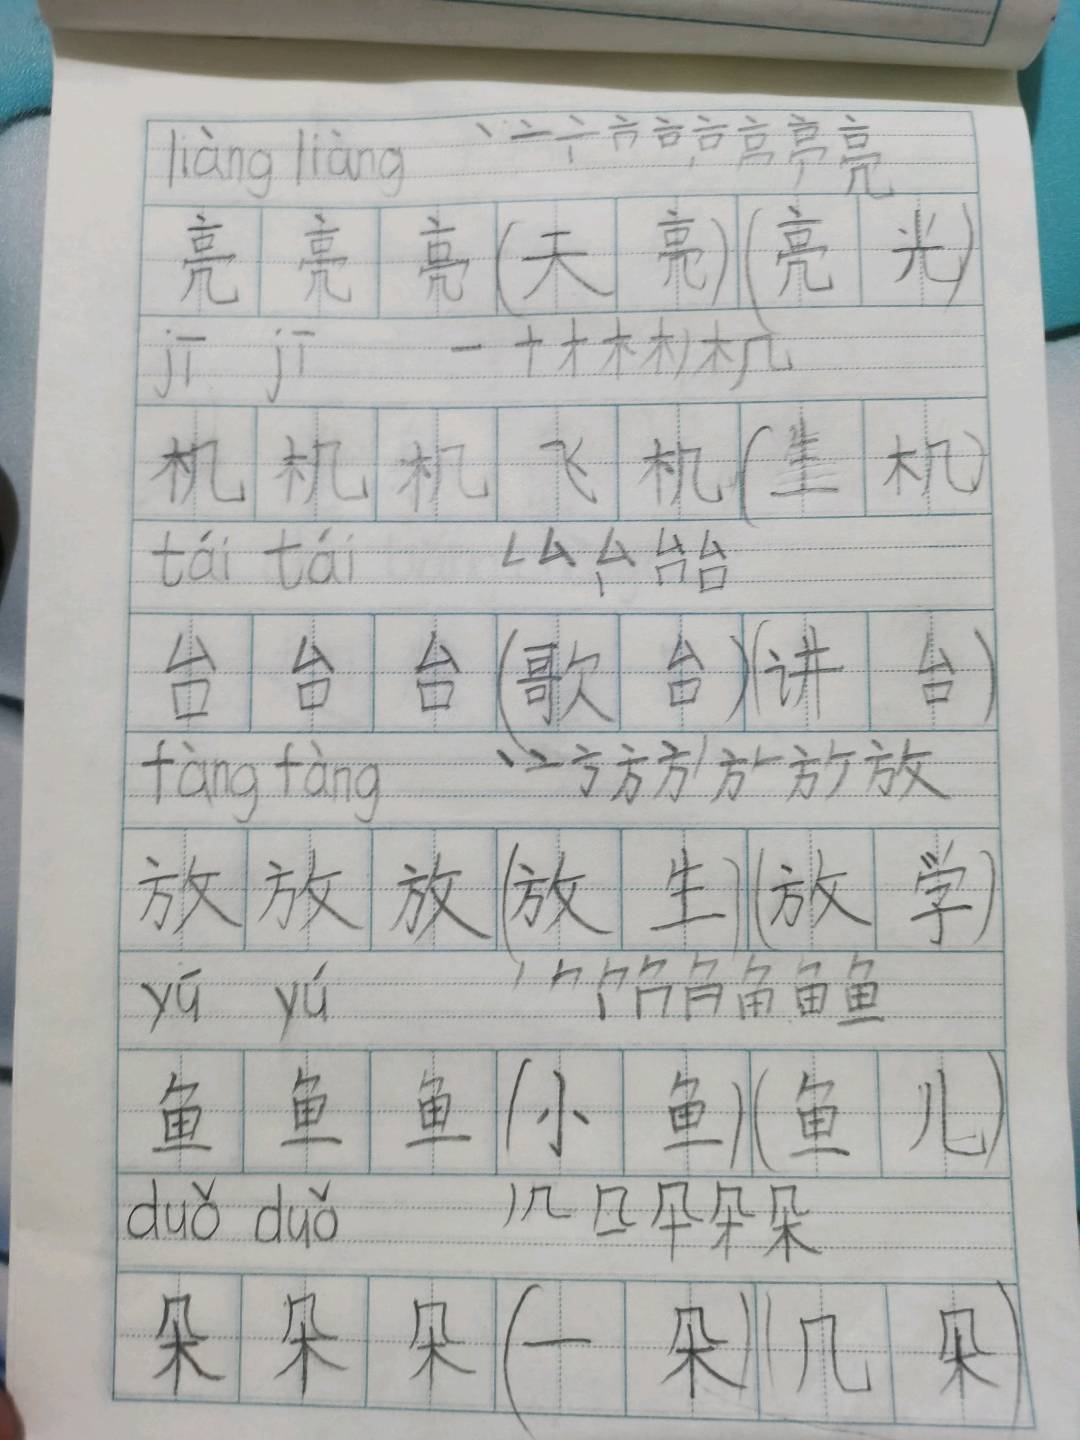 liàng liàng 丶 亠 亮
亮 亮 亮 (天 亮) (亮 光)
jī jī 一 十 才 木 机
机 机 机 飞 机 (生 机)
tái tái 厶 台 台
台 台 台 (歌 台) (讲 台)
fàng fàng 丶 亠 方 方 放
放 放 放 (放 生) (放 学)
yú yú 丿 𠂊 鱼
鱼 鱼 鱼 (小 鱼) (鱼 儿)
duǒ duǒ 丿 几 朵 朵
朵 朵 朵 (一 朵) (几 朵)